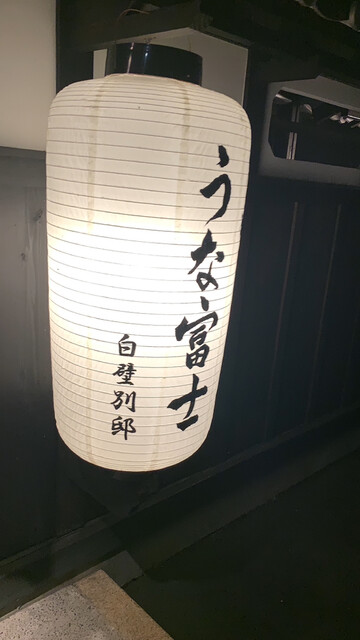 うな富士
白壁別邸